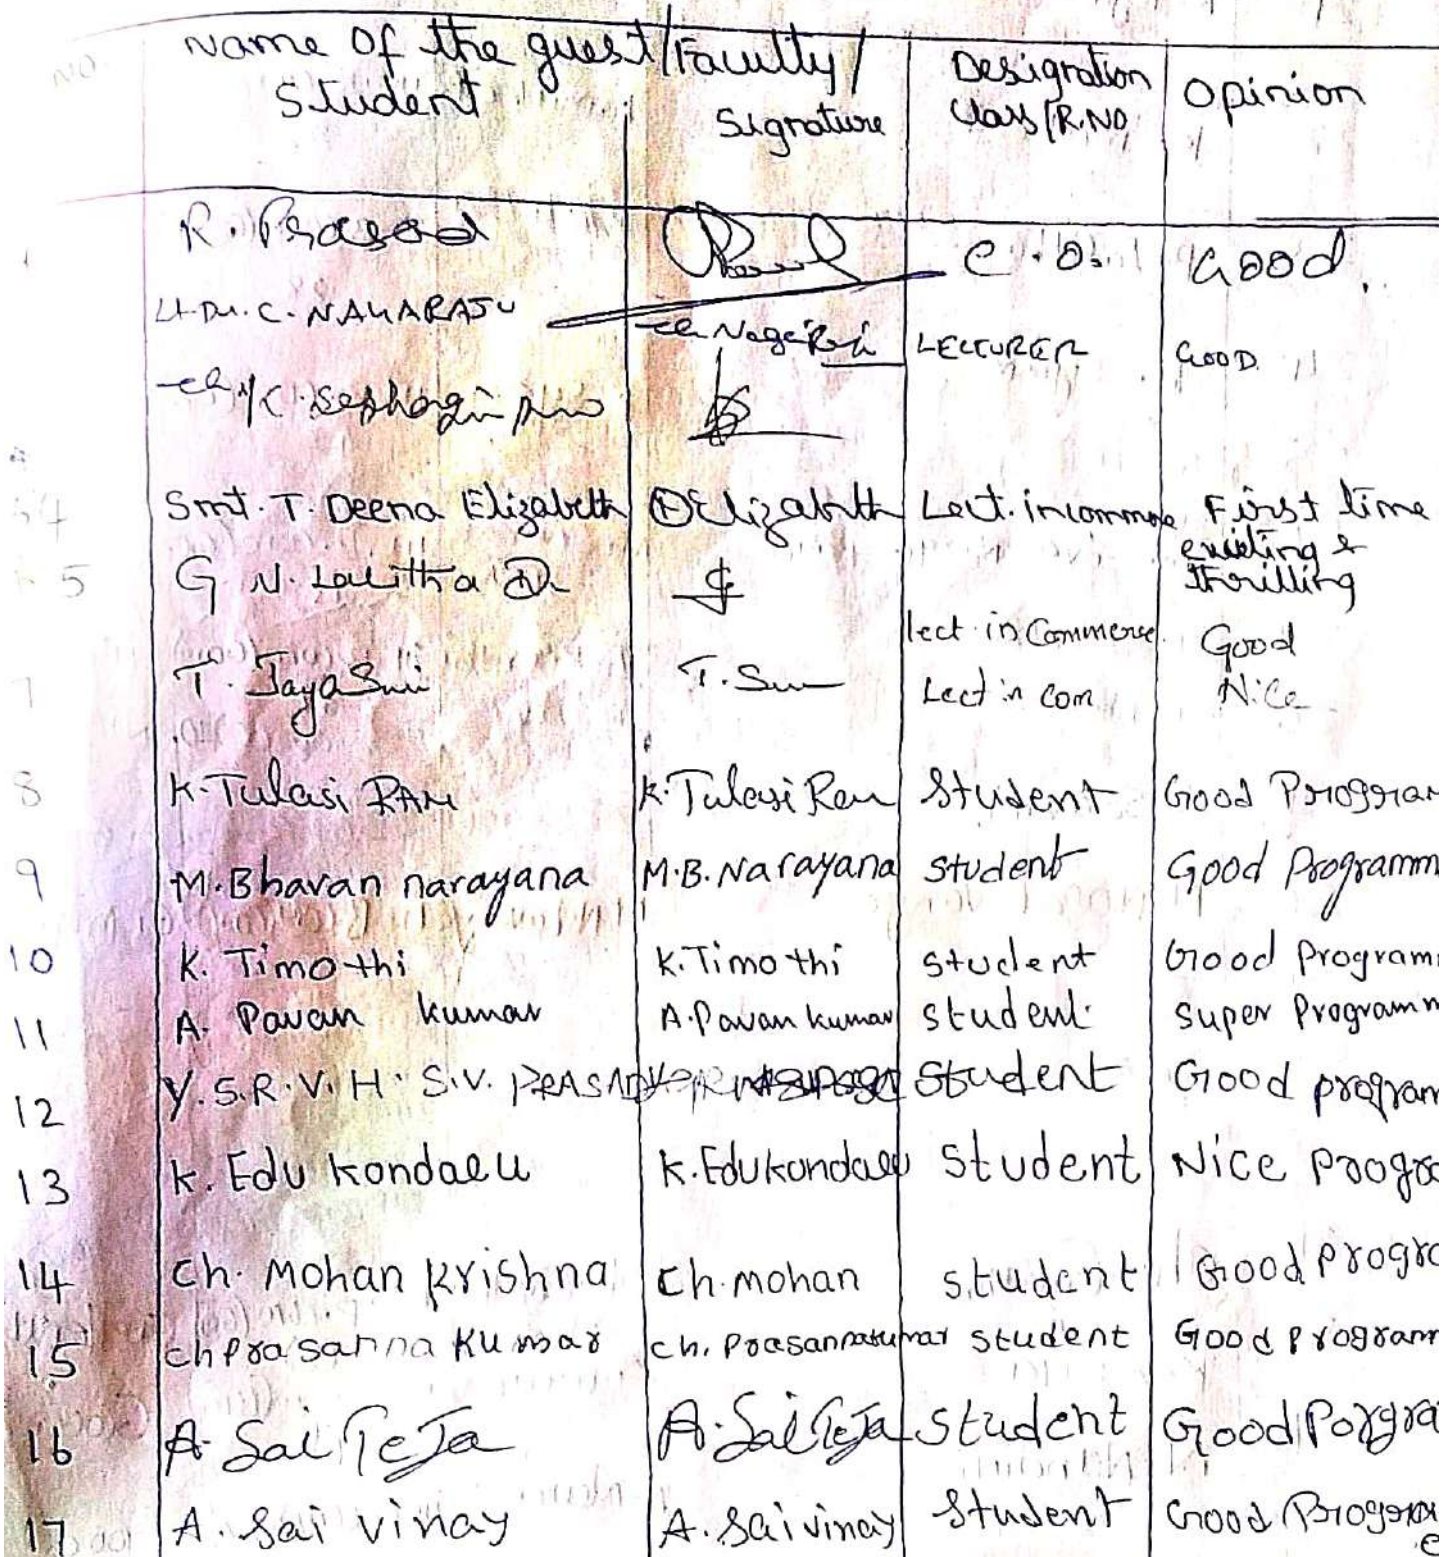 NO. Name of the guest/Faculty/ Designation Opinion
Student Signature Class/R.NO
R. Prasad C.O. Good.
Lt. Dr. C. NAGARAJU ch Nagaraju LECTURER GOOD
Smt. T. Deena Elizabeth DElizabeth Lect. in commerce First time
exciting &
4
5 G N. Lalitha thrilling
lect. in Commerce Good
7 T. Jaya Sri T. Sri Lect in com Nice
8 K. Tulasi RAM K. Tulasi Ram Student Good Program
9 M. Bhavan narayana M.B. Narayana student Good Programm
10 K. Timothi K. Timothi student Good Program
11 A. Pavan kumar A. Pavan kumar student. Super Programm
12 Y. S.R.V.H. S.V. PRASAD student Good program
13 K. Edu kondalu K. Edukondalu student Nice Progra
14 Ch. Mohan Krishna Ch. mohan student Good progra
15 ch prasanna Kumar ch. prasannakumar student Good program
16 A. Sai TeJa A. Sai TeJa student Good Porgra
17 A. Sai vinay A. Sai vinay Student Good Progra